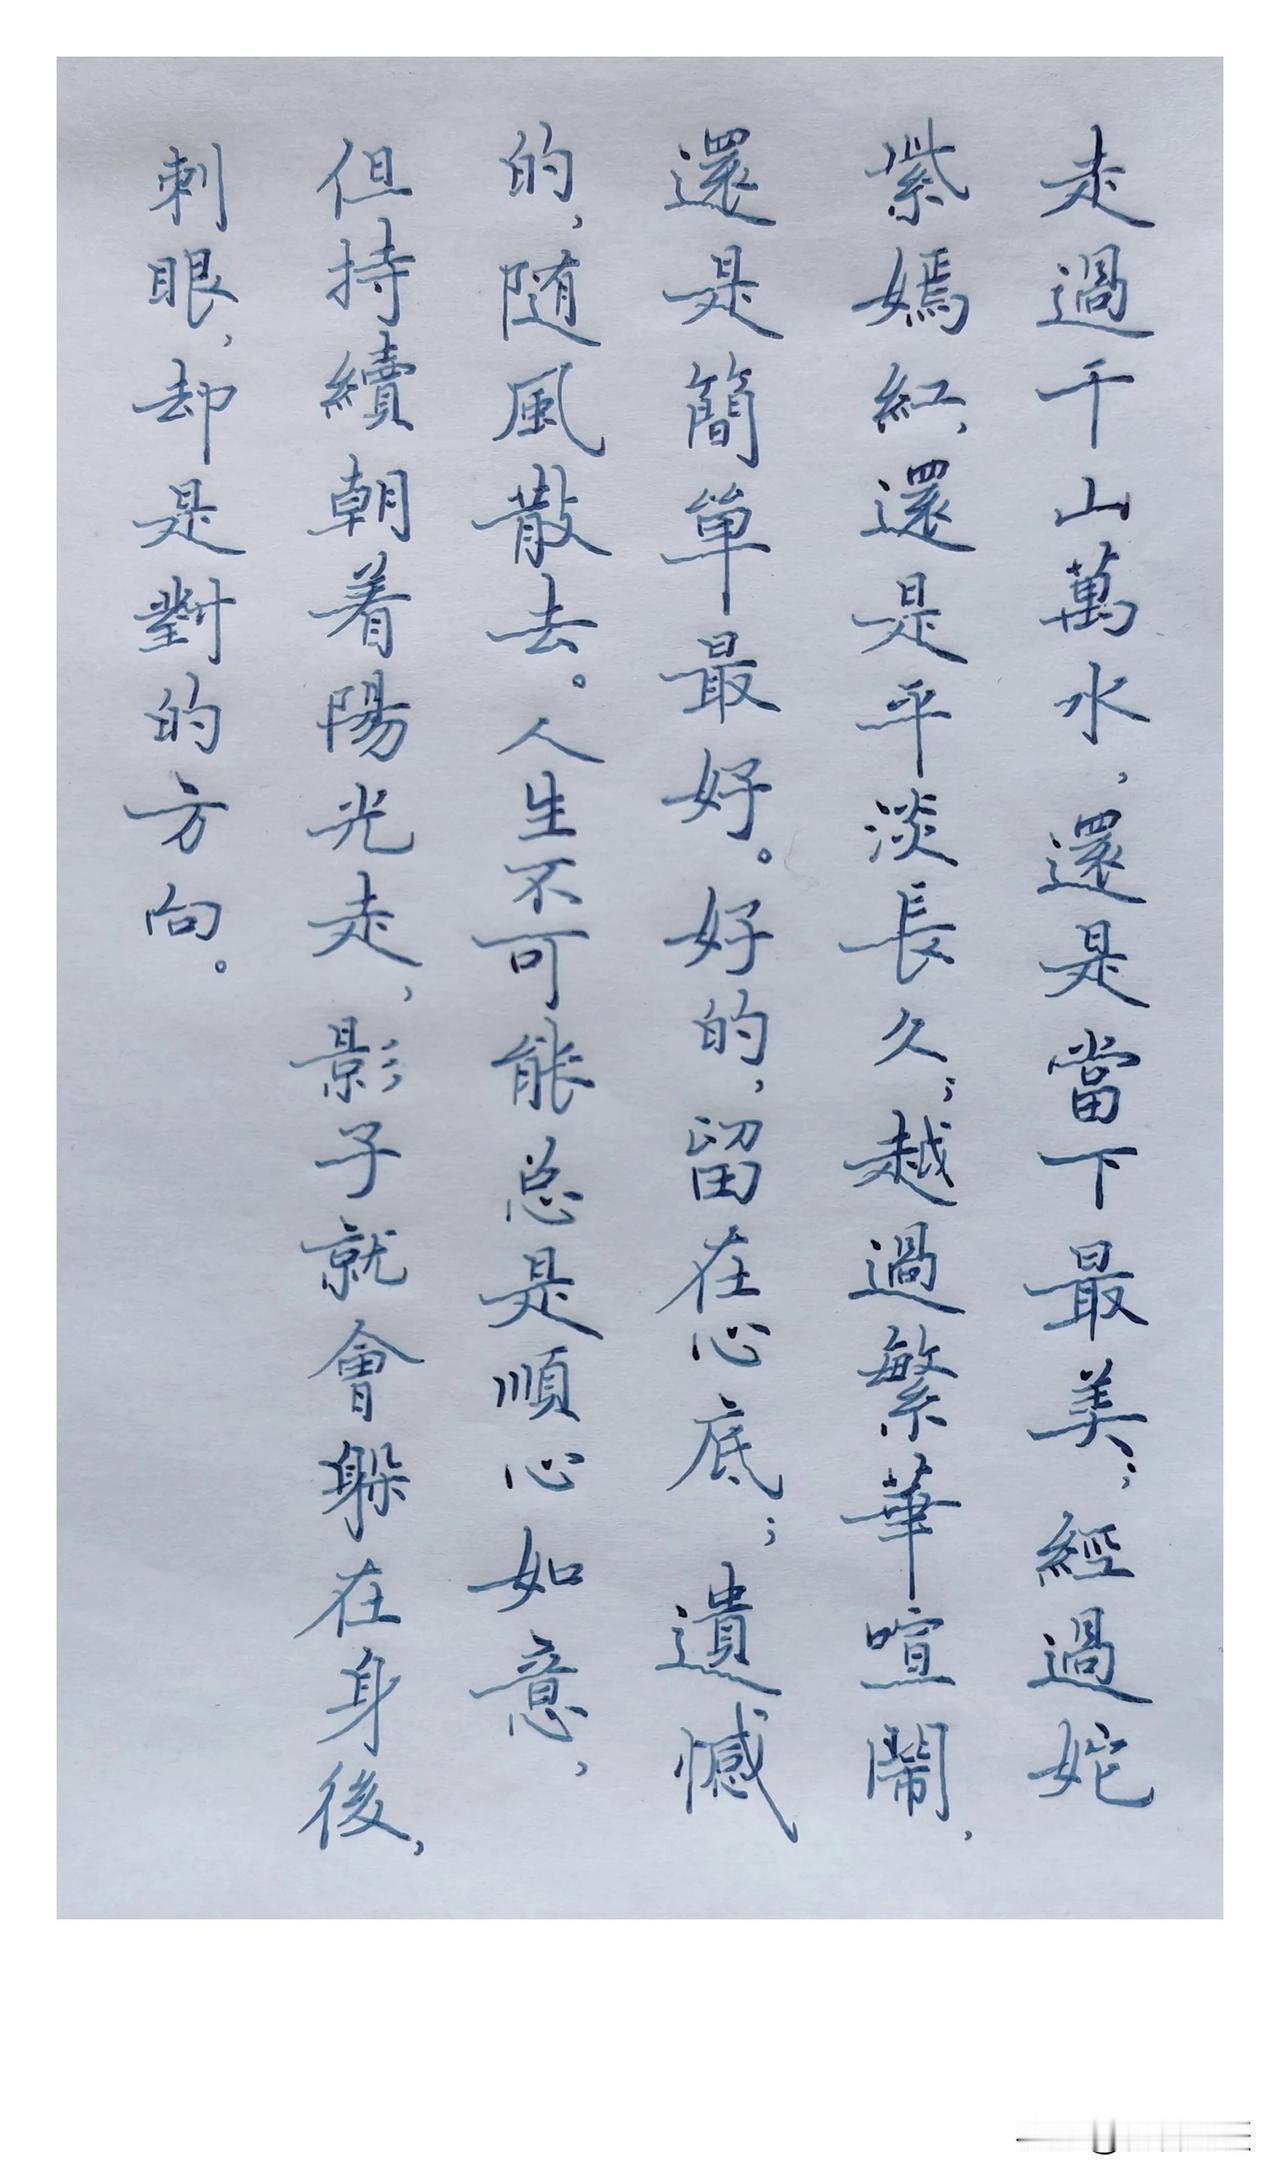 走過千山萬水，還是當下最美；經過姹
紫嫣紅，還是平淡長久；越過繁華喧鬧，
還是簡單最好。好的，留在心底；遺憾
的，随風散去。人生不可能总是順心如意，
但持續朝着陽光走，影子就會躲在身後，
刺眼，却是對的方向。